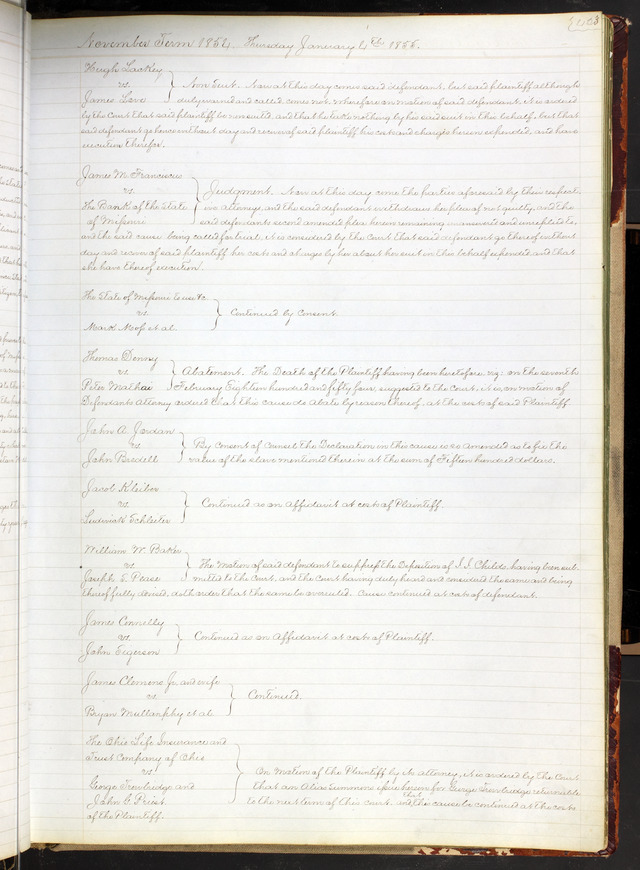 November Term 1854. Thursday January 4th 1855.
Hugh Lackey
vs. Non Suit. Now at this day comes said defendant, but said plaintiff although
James Love duly warned and called comes not. Wherefore on motion of said defendant, it is ordered
by the Court that said plaintiff be nonsuited, and that he take nothing by his said suit in this behalf, but that
said defendant go hence without day and recover of said plaintiff his costs and charges herein expended, and have
execution therefor.
James M. Franciscus
vs. Judgment. Now at this day come the parties aforesaid by their respect-
The Bank of the State ive Attorneys, and the said defendant withdraws her plea of not guilty, and the
of Missouri said defendants second amended plea herein remaining unanswered and unreplied to,
and the said cause being called for trial, it is considered by the Court that said defendant go thereof without
day and recover of said plaintiff her costs and charges by her about her suit in this behalf expended and that
she have thereof execution.
The State of Missouri to use &c.
vs. Continued by Consent.
Mark Moss et al.
Thomas Denny
vs. Abatement. The Death of the Plaintiff having been heretofore, viz: on the seventh
Peter Mathai February Eighteen hundred and fifty four, suggested to the Court, it is, on motion of
Defendants Attorney ordered that this cause do abate by reason thereof, at the cost of said Plaintiff.
John A. Jordan
vs. By Consent of Counsel the Declaration in this cause is so amended as to fix the
John Bredell value of the slave mentioned therein at the sum of Fifteen hundred dollars.
Jacob Kleiber
vs. Continued as on Affidavit at costs of Plaintiff.
Ludwick Schleiter
William W. Baker
vs. The Motion of said defendant to suppress the Deposition of J. J. Childs, having been sub-
Joseph S. Pease mitted to the Court, and the Court having duly heard and considered the same and being
thereof fully advised, doth order that the same be overruled. Cause continued at costs of defendant.
James Connelly
vs. Continued as on Affidavit at costs of Plaintiff.
John Sigerson
James Clemens Jr. and wife
vs. Continued.
Bryan Mullanphy et al
The Ohio Life Insurance and
Trust Company of Ohio
vs. On Motion of the Plaintiff by its attorney, it is ordered by the Court
George Trowbridge and that an Alias Summons issue herein for George Trowbridge returnable
John G. Priest to the next term of this court, and that this cause be continued at the costs
of the Plaintiff.